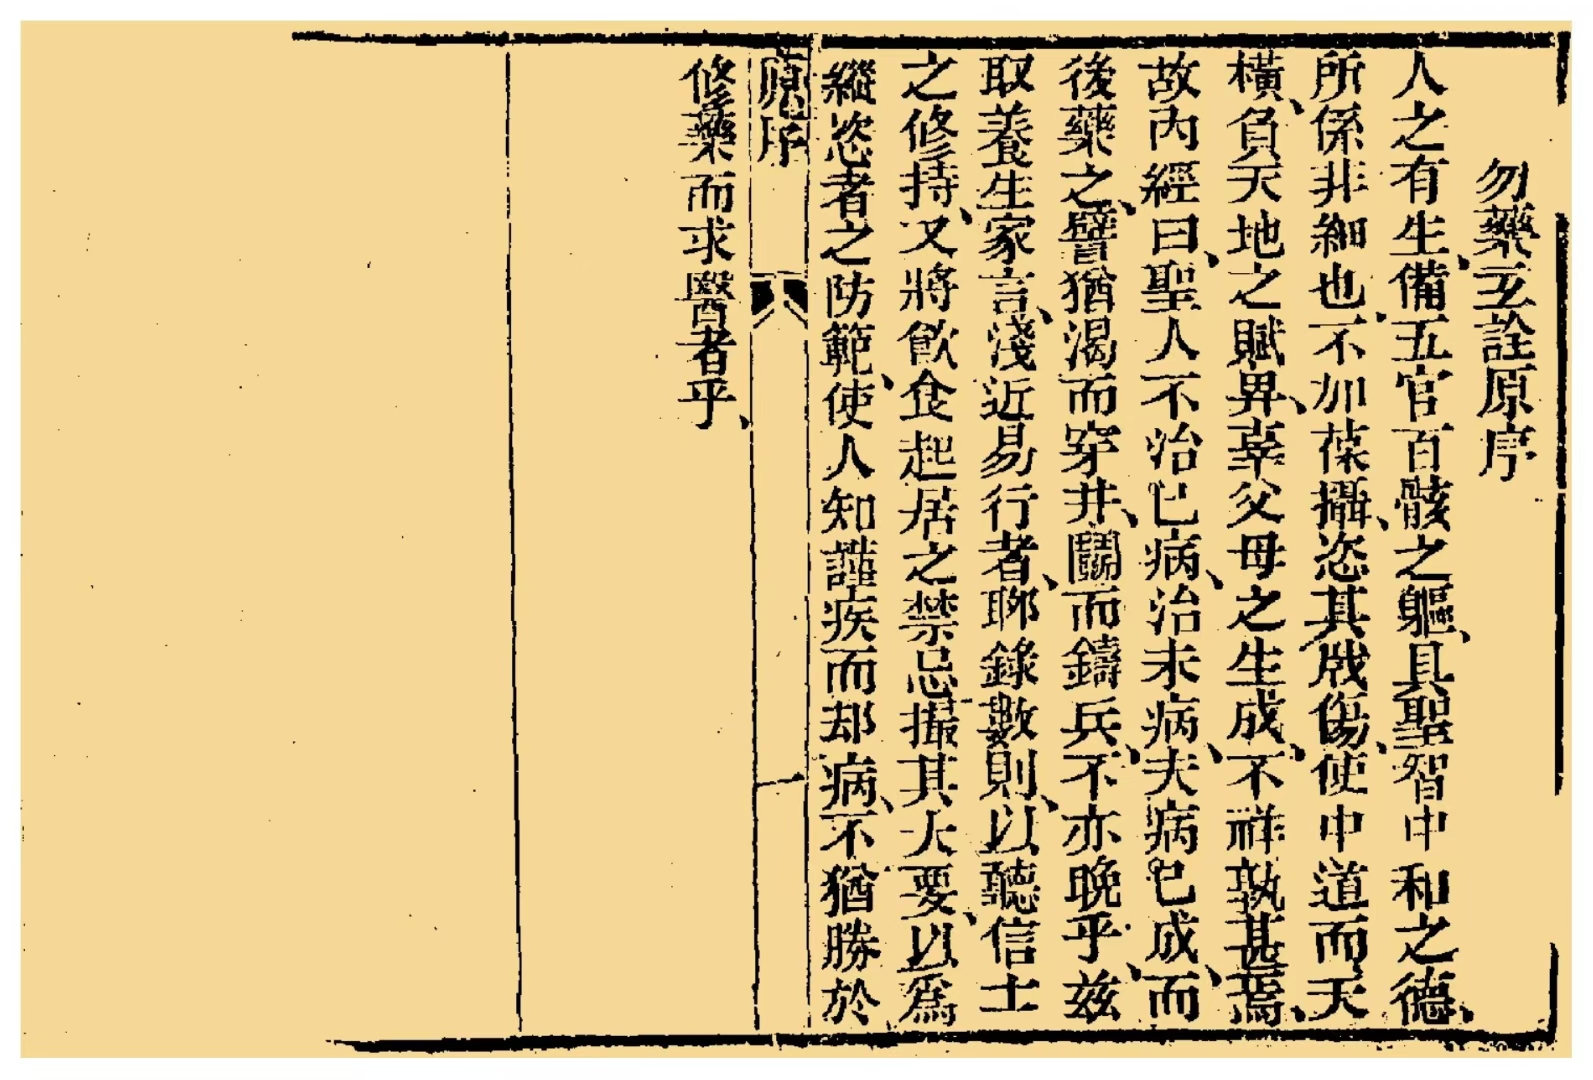 勿藥玄詮原序
人之有生、備五官百骸之軀、具聖智中和之德、
所係非細也、不加葆攝、恣其戕傷、使中道而夭
橫、負天地之賦畀、辜父母之生成、不祥孰甚焉、
故內經曰、聖人不治已病、治未病、夫病已成、而
後藥之、譬猶渴而穿井、鬪而鑄兵、不亦晚乎、茲
取養生家言、淺近易行者、聊錄數則、以聽信士
之修持、又將飲食起居之禁忌撮其大要、以爲
縱恣者之防範、使人知謹疾而却病、不猶勝於
原序
一
修藥而求醫者乎、